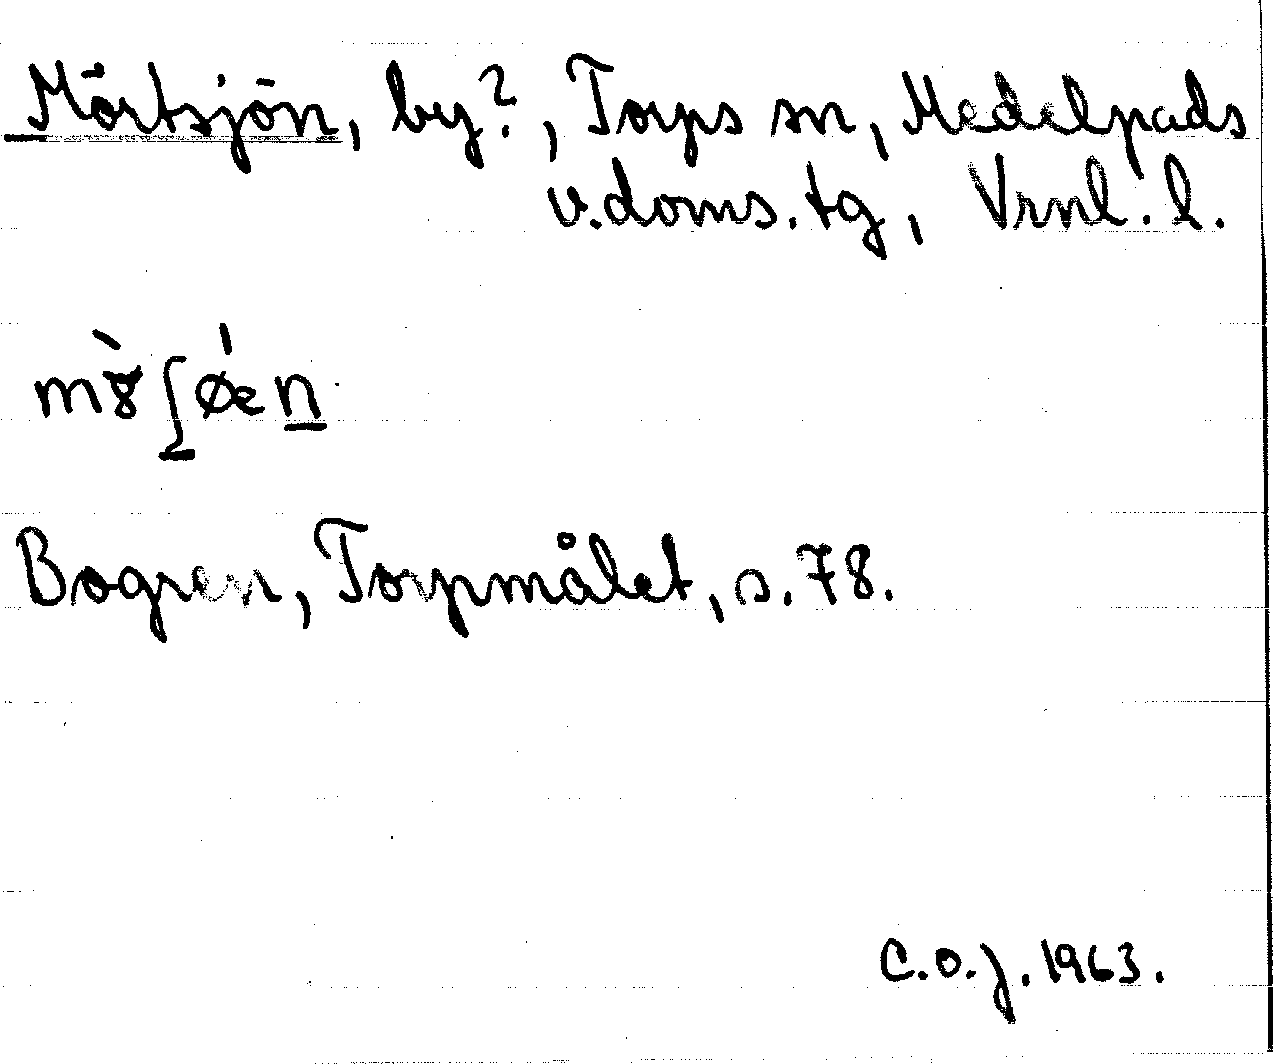 Mörtsjön, by?, Torps sn, Medelpads
v. doms. tg, Vrnl. l.
Bogren, Torpmålet, s. 78.
C.O.J. 1963.